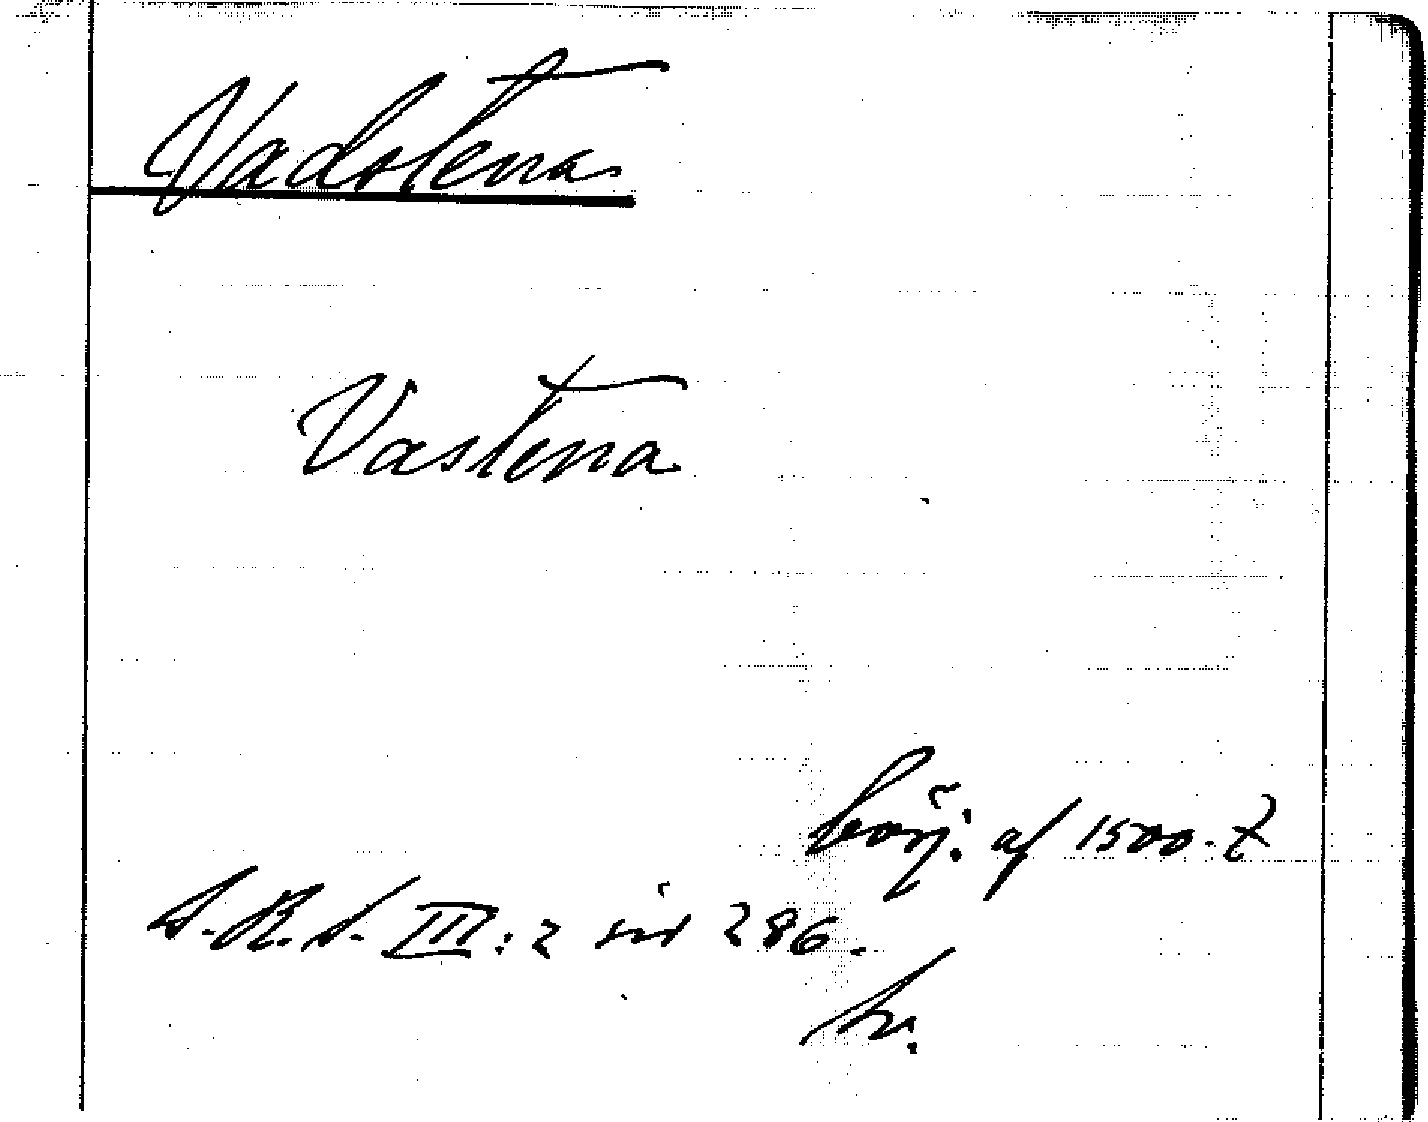 Vadstena
Vastena
börj. af 1500-t
S.R.S. III:2 sid 286.
tr.